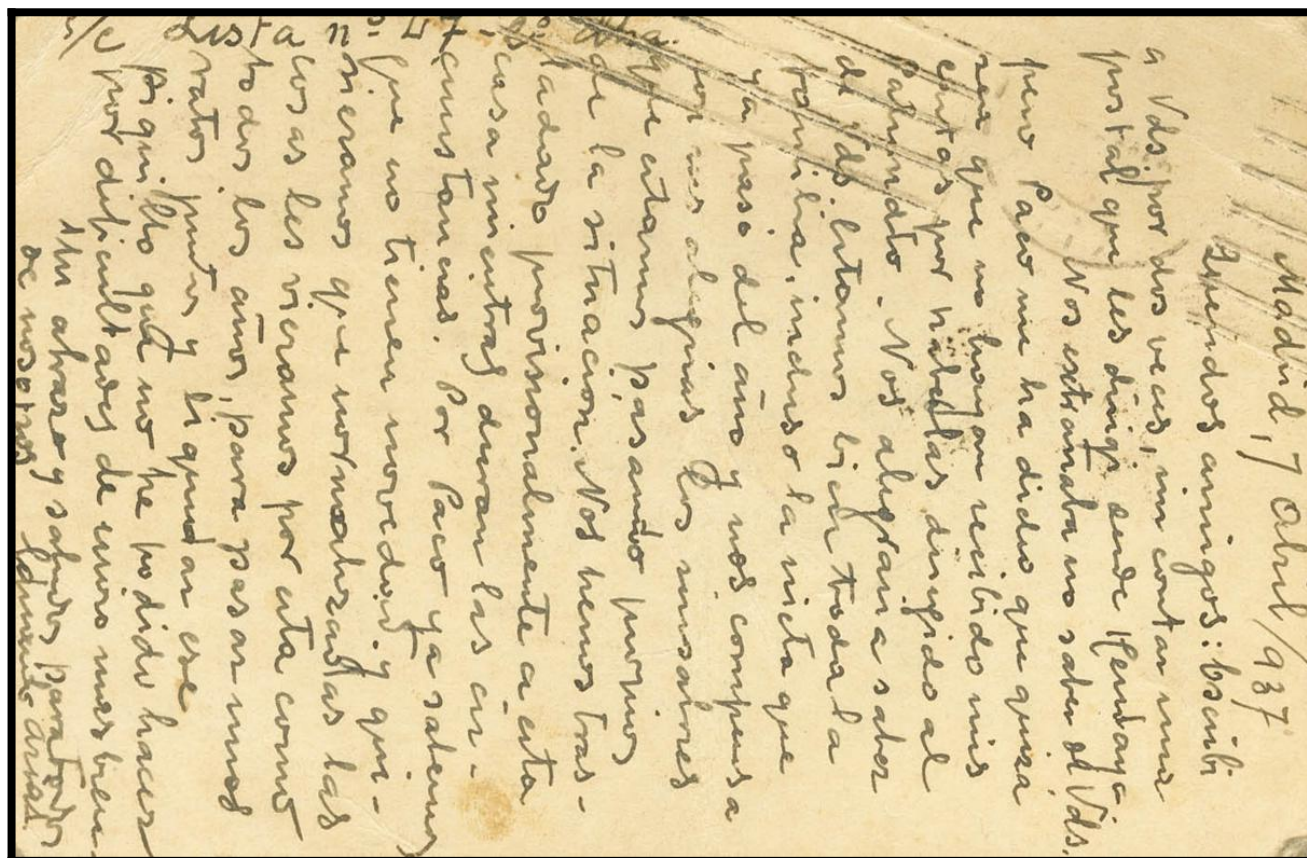 s/c Lista nº 47-
Madrid, 7 Abril/937
Queridos amigos: Escribi
a Vds. por dos veces, sin contar una
postal que les dirigi desde Hendaya
Nos extrañaba no saber de Vds.
pero Paco me ha dicho que quiza
sea que no hayan recibido mis
cartas por haberlas dirigido al
. Nos alegraria saber
de Vds. Estamos bien toda la
familia, incluso la nieta que
ya pasa del año y nos compensa
con sus alegrias los sinsabores
que estamos pasando
de la situacion. Nos hemos tras-
ladado provisionalmente a esta
casa mientras duran las cir-
cunstancias. Por Paco ya sabemos
que no tienen novedad y qui-
sieramos que normalizadas las
cosas les vieramos por esta como
todos los años, para pasar unos
ratos juntos y liquidar ese
piquillo que no he podido hacer
por dificultades de envio mas bien.
Un abrazo y saludos para todos
de nosotros